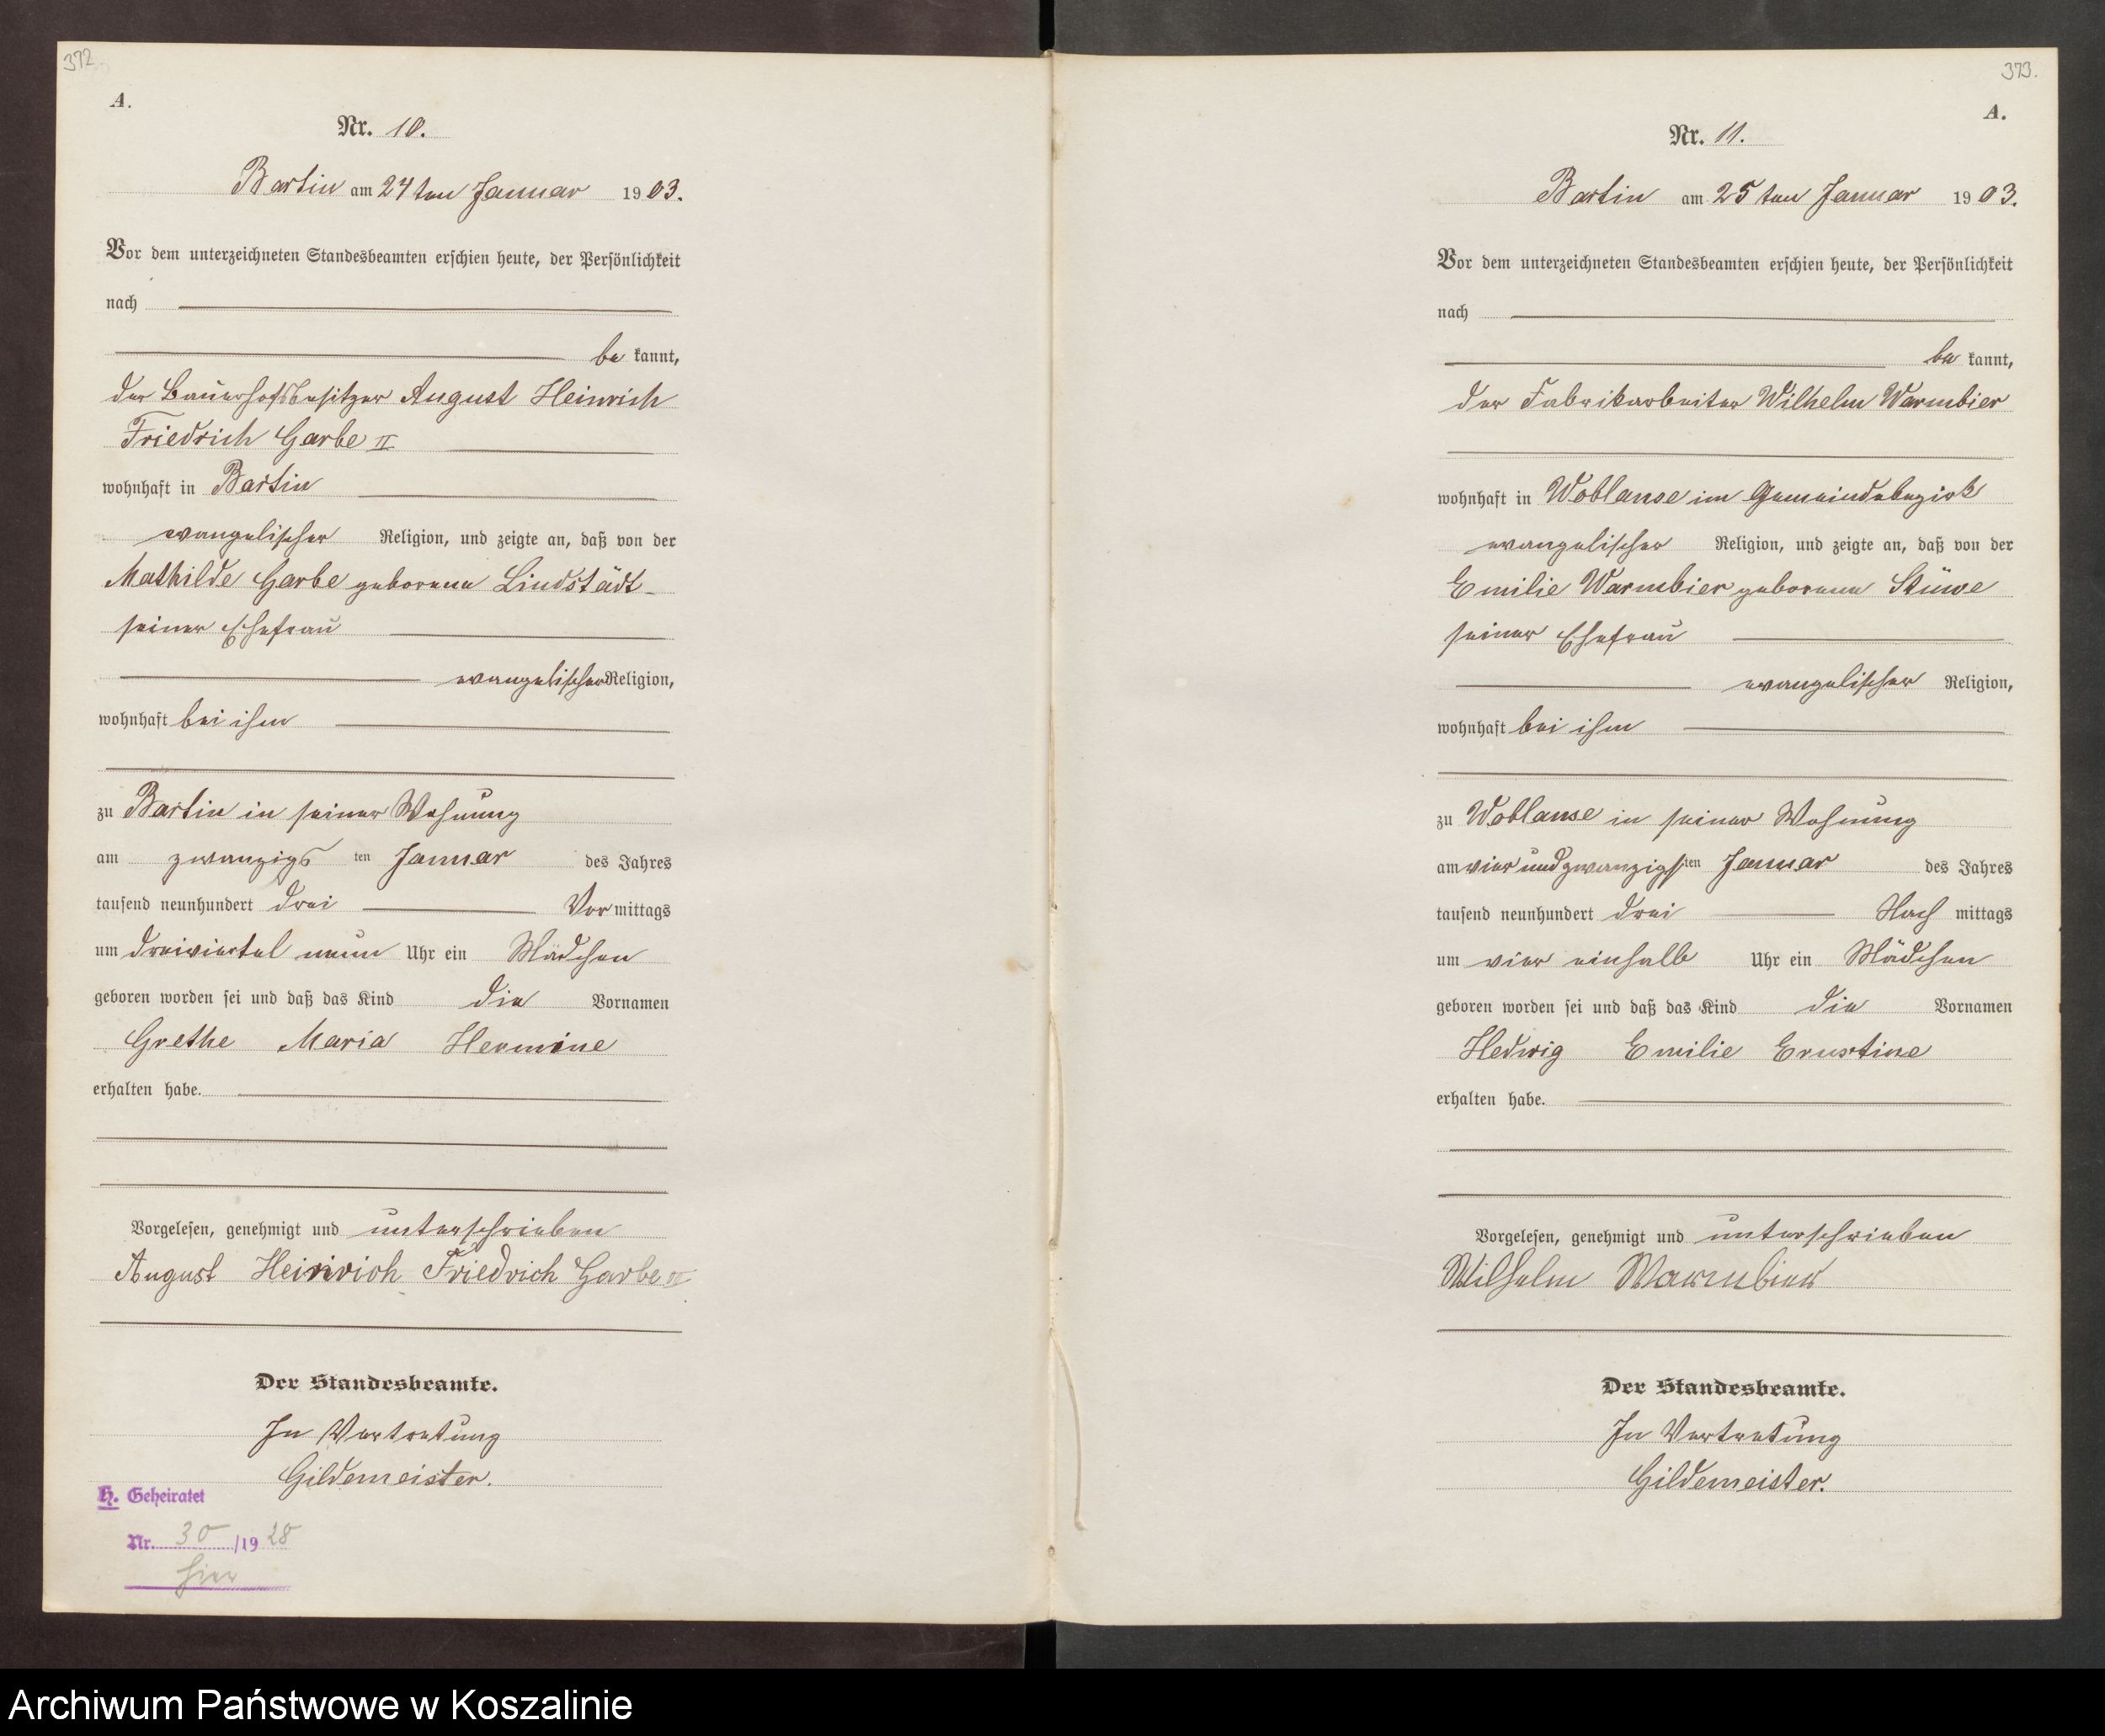 372
A.
Nr. 10.
Bartin am 24 ten Januar 1903.
Vor dem unterzeichneten Standesbeamten erschien heute, der Persönlichkeit
nach
be kannt,
der Bauerhofsbesitzer August Heinrich
Friedrich Garbe II
wohnhaft in Bartin
evangelischer Religion, und zeigte an, daß von der
Mathilde Garbe geborene Lindstädt
seiner Ehefrau
evangelischer Religion,
wohnhaft bei ihm
zu Bartin in seiner Wohnung
am zwanzigs ten Januar des Jahres
tausend neunhundert drei Vor mittags
um dreiviertel neun Uhr ein Mädchen
geboren worden sei und daß das Kind die Vornamen
Grethe Maria Hermine
erhalten habe.
Vorgelesen, genehmigt und unterschrieben
August Heinrich Friedrich Garbe II
Der Standesbeamte.
In Vertretung
Gildemeister.
H. Geheiratet
Nr. 30 /19 28
hier
373.
A.
Nr. 11.
Bartin am 25 ten Januar 1903.
Vor dem unterzeichneten Standesbeamten erschien heute, der Persönlichkeit
nach
be kannt,
der Fabrikarbeiter Wilhelm Warmbier
wohnhaft in Woblanse im Gemeindebezirk
evangelischer Religion, und zeigte an, daß von der
Emilie Warmbier geborene Stüwe
seiner Ehefrau
evangelischer Religion,
wohnhaft bei ihm
zu Woblanse in seiner Wohnung
am vier und zwanzigs ten Januar des Jahres
tausend neunhundert drei Nach mittags
um vier einhalb Uhr ein Mädchen
geboren worden sei und daß das Kind die Vornamen
Hedwig Emilie Ernstine
erhalten habe.
Vorgelesen, genehmigt und unterschrieben
Wilhelm Warmbier
Der Standesbeamte.
In Vertretung
Gildemeister.
Archiwum Państwowe w Koszalinie